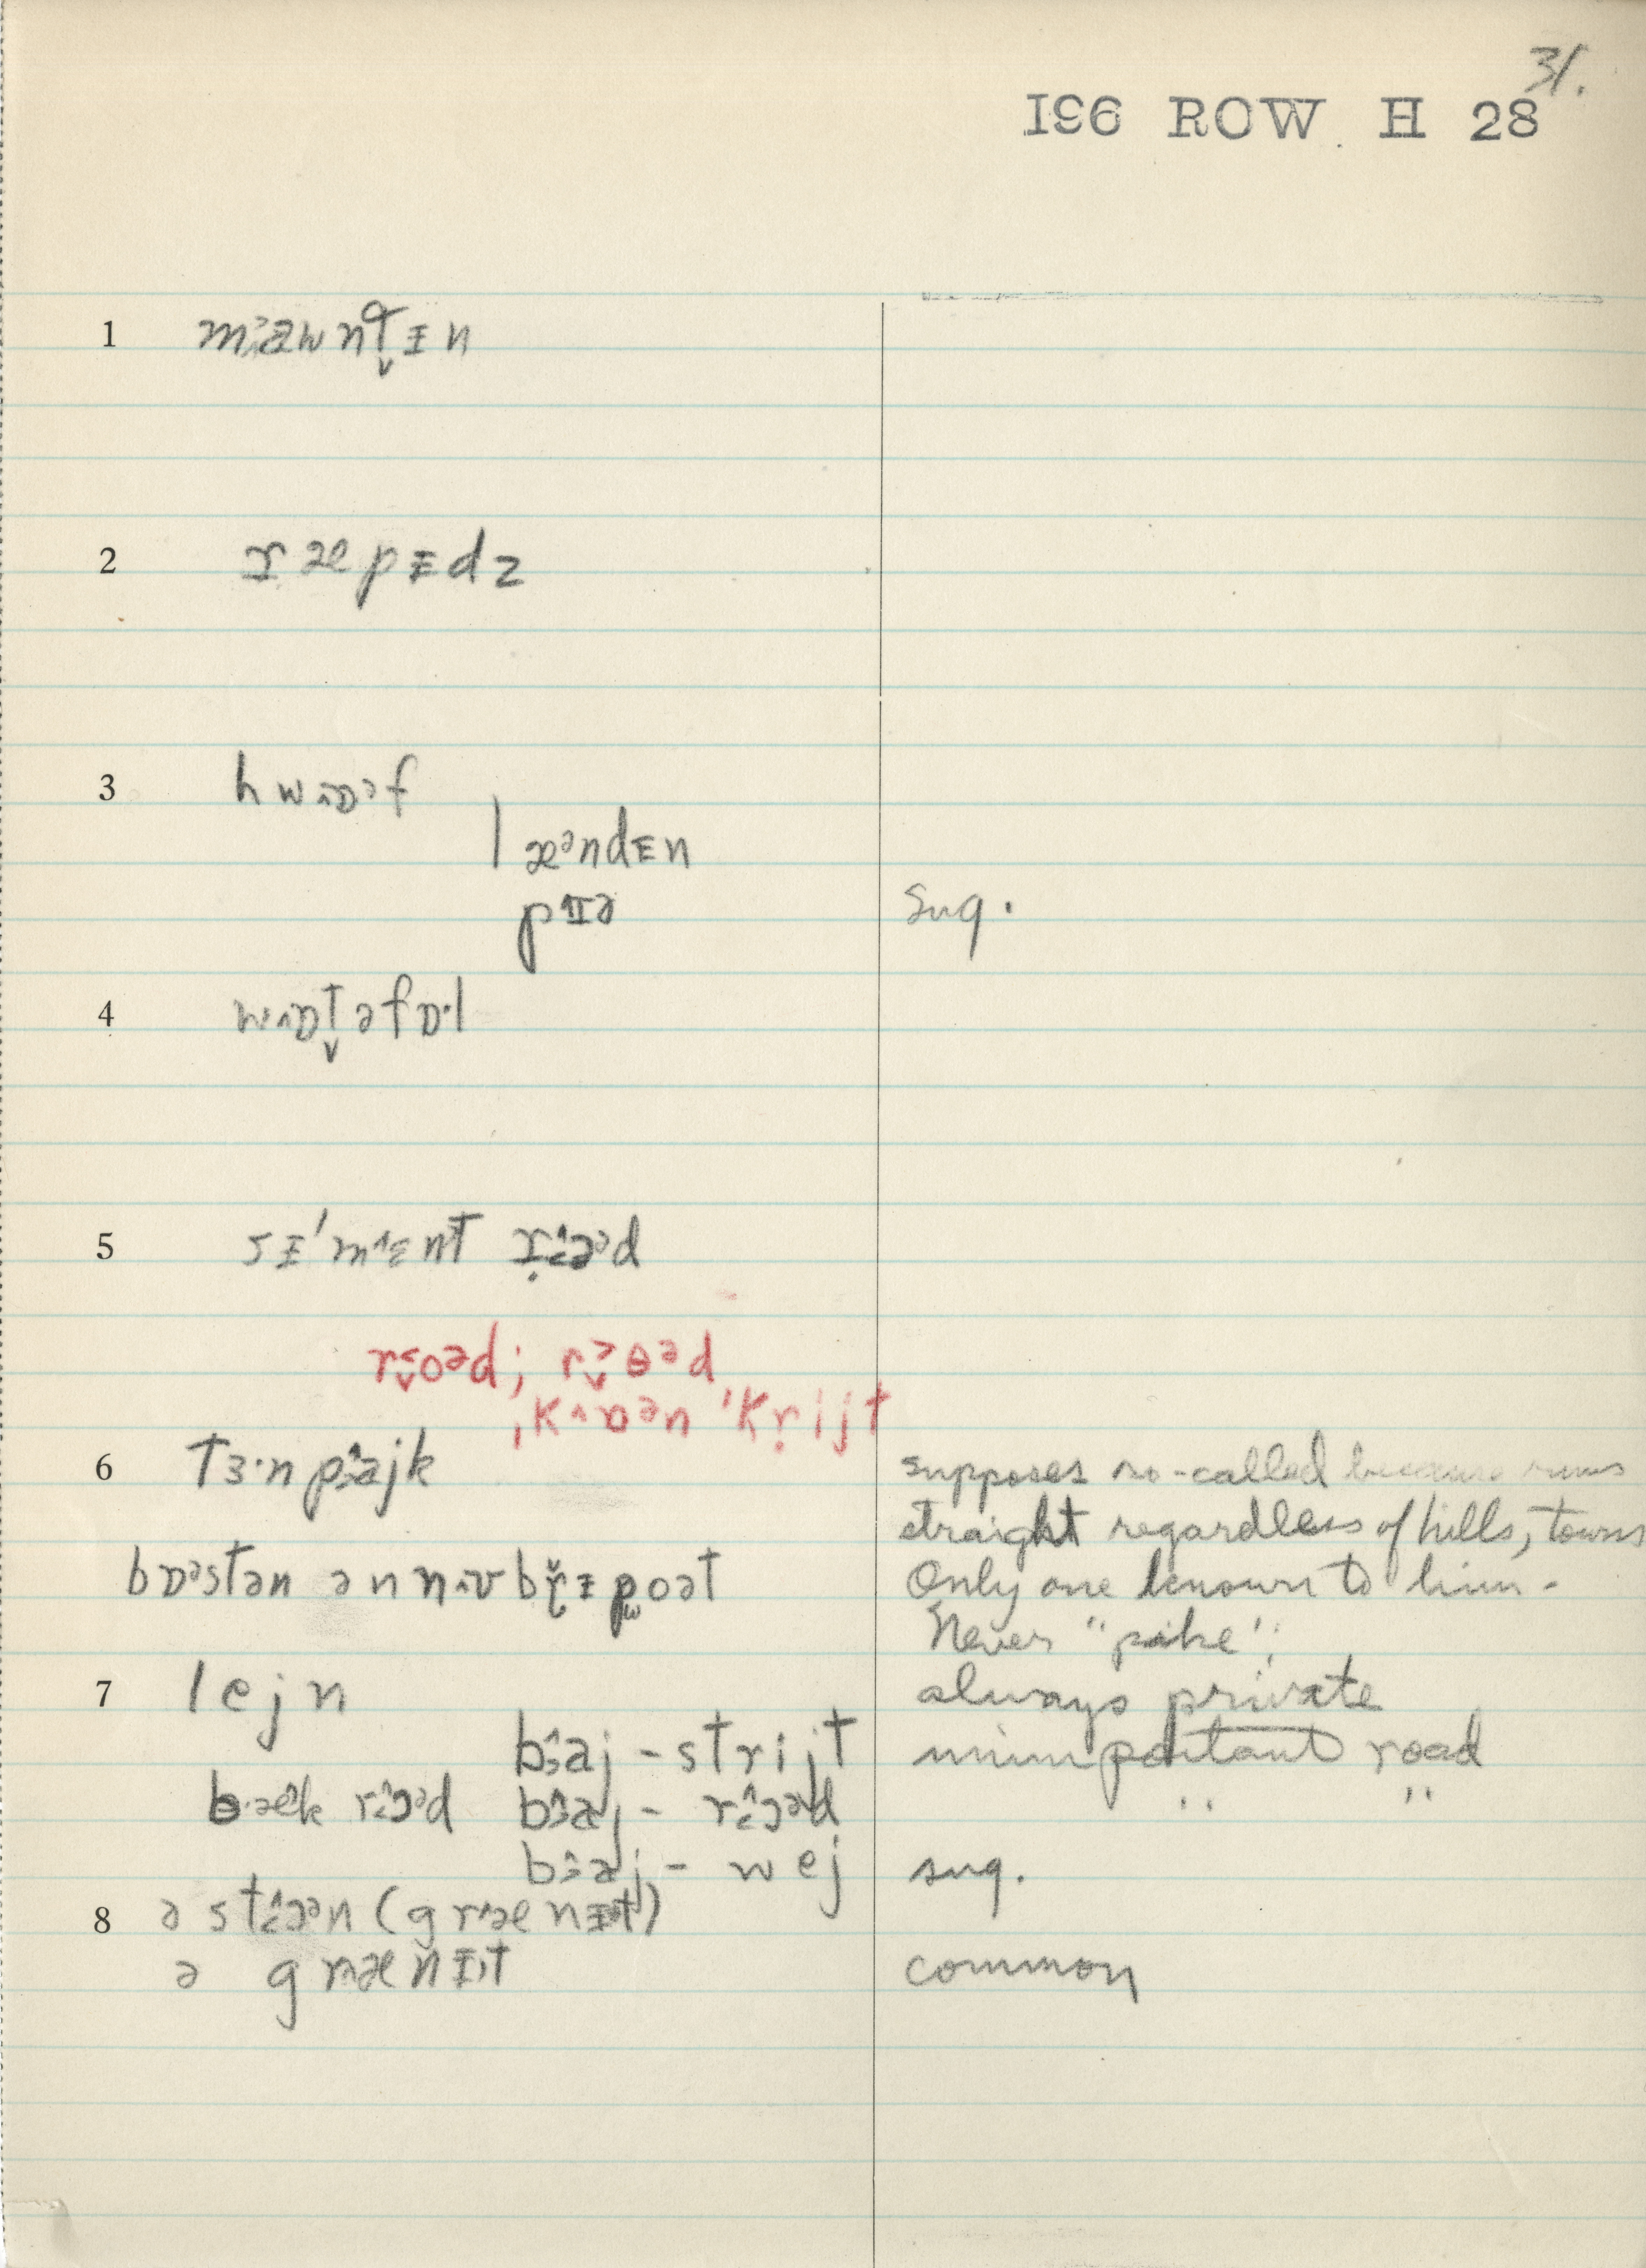 31.
196 ROW H 28
1 mɜawntᵻn
2 ræpᵻdz
3 hwɒᵊf
læᵊndᵻn
pɪə sug.
4 wɒtəfɒ·l
5 sᵻˈmɛnt
roᵊd; rɵᵊd
ˌkɒᵊnˈkrijt
6 tɜ·npɜajk supposes so-called because runs
straight regardless of hills, towns
bɒᵊstən ən nʌubrᵻpoət Only one known to him -
Never "pike";
7 lejn always private
bɜaj-strijt unimportant road
" "
bɜaj-wej sug.
8
ə grænᵻt common